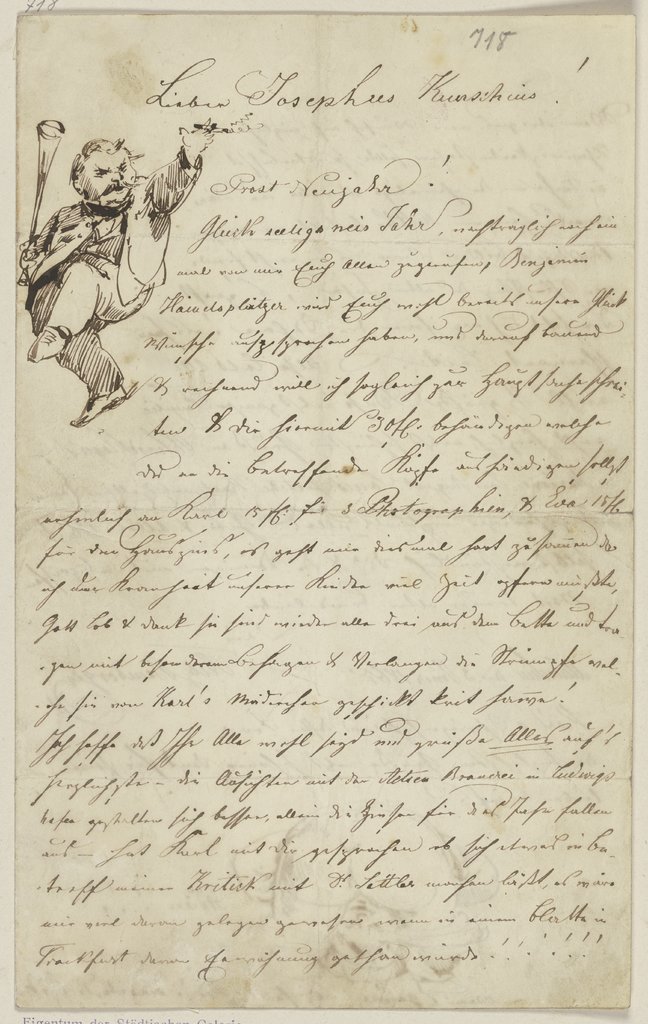 718
718
Lieber Josephus Kurschius!
Prost Neujahr!
Glückseliges neis Jahr, nachträglich noch ein
mal von mir Euch Allen zugerufen, Benjamin
wird Euch wohl bereits unsere Glück
Wünsche ausgesprochen haben, und darauf bauend
& rechnend will ich sogleich zur Hauptsache schrei-
ten & Dir hiermit 30 fl. behändigen welche
Du an die betreffende Köpfe aushändigen sollst
nehmlich an Karl 15 fl. für 3 Photographien, & Eva 15 fl.
für den Hauszins, es geht mir diesmal hart zusammen da
ich der Krankheit unserer Kinder viel Zeit opfern mußte,
Gott Lob & Dank sie sind wieder alle drei aus dem Bette und tra-
-gen mit besonderem Behagen & Verlangen die Strümpfe wel-
-che sie von Karl's geschickt
Ich hoffe daß Ihr Alle wohl seyd und grüße Alles auf's
herzlichste - die Aussichten mit der Actien Brauerei in Ludwigs
hafen gestalten sich besser, allein die Zinsen für dies Jahr fallen
aus - hat Karl mit Dir gesprochen ob sich etwas in Be-
-treff meiner Kritick mit Dr. Sattler machen läßt, es wäre
mir viel daran gelegen gewesen wenn in einem Blatte in
Frankfurt davon Erwähnung gethan würde!!!!!!
Eigentum der Städtischen Galerie